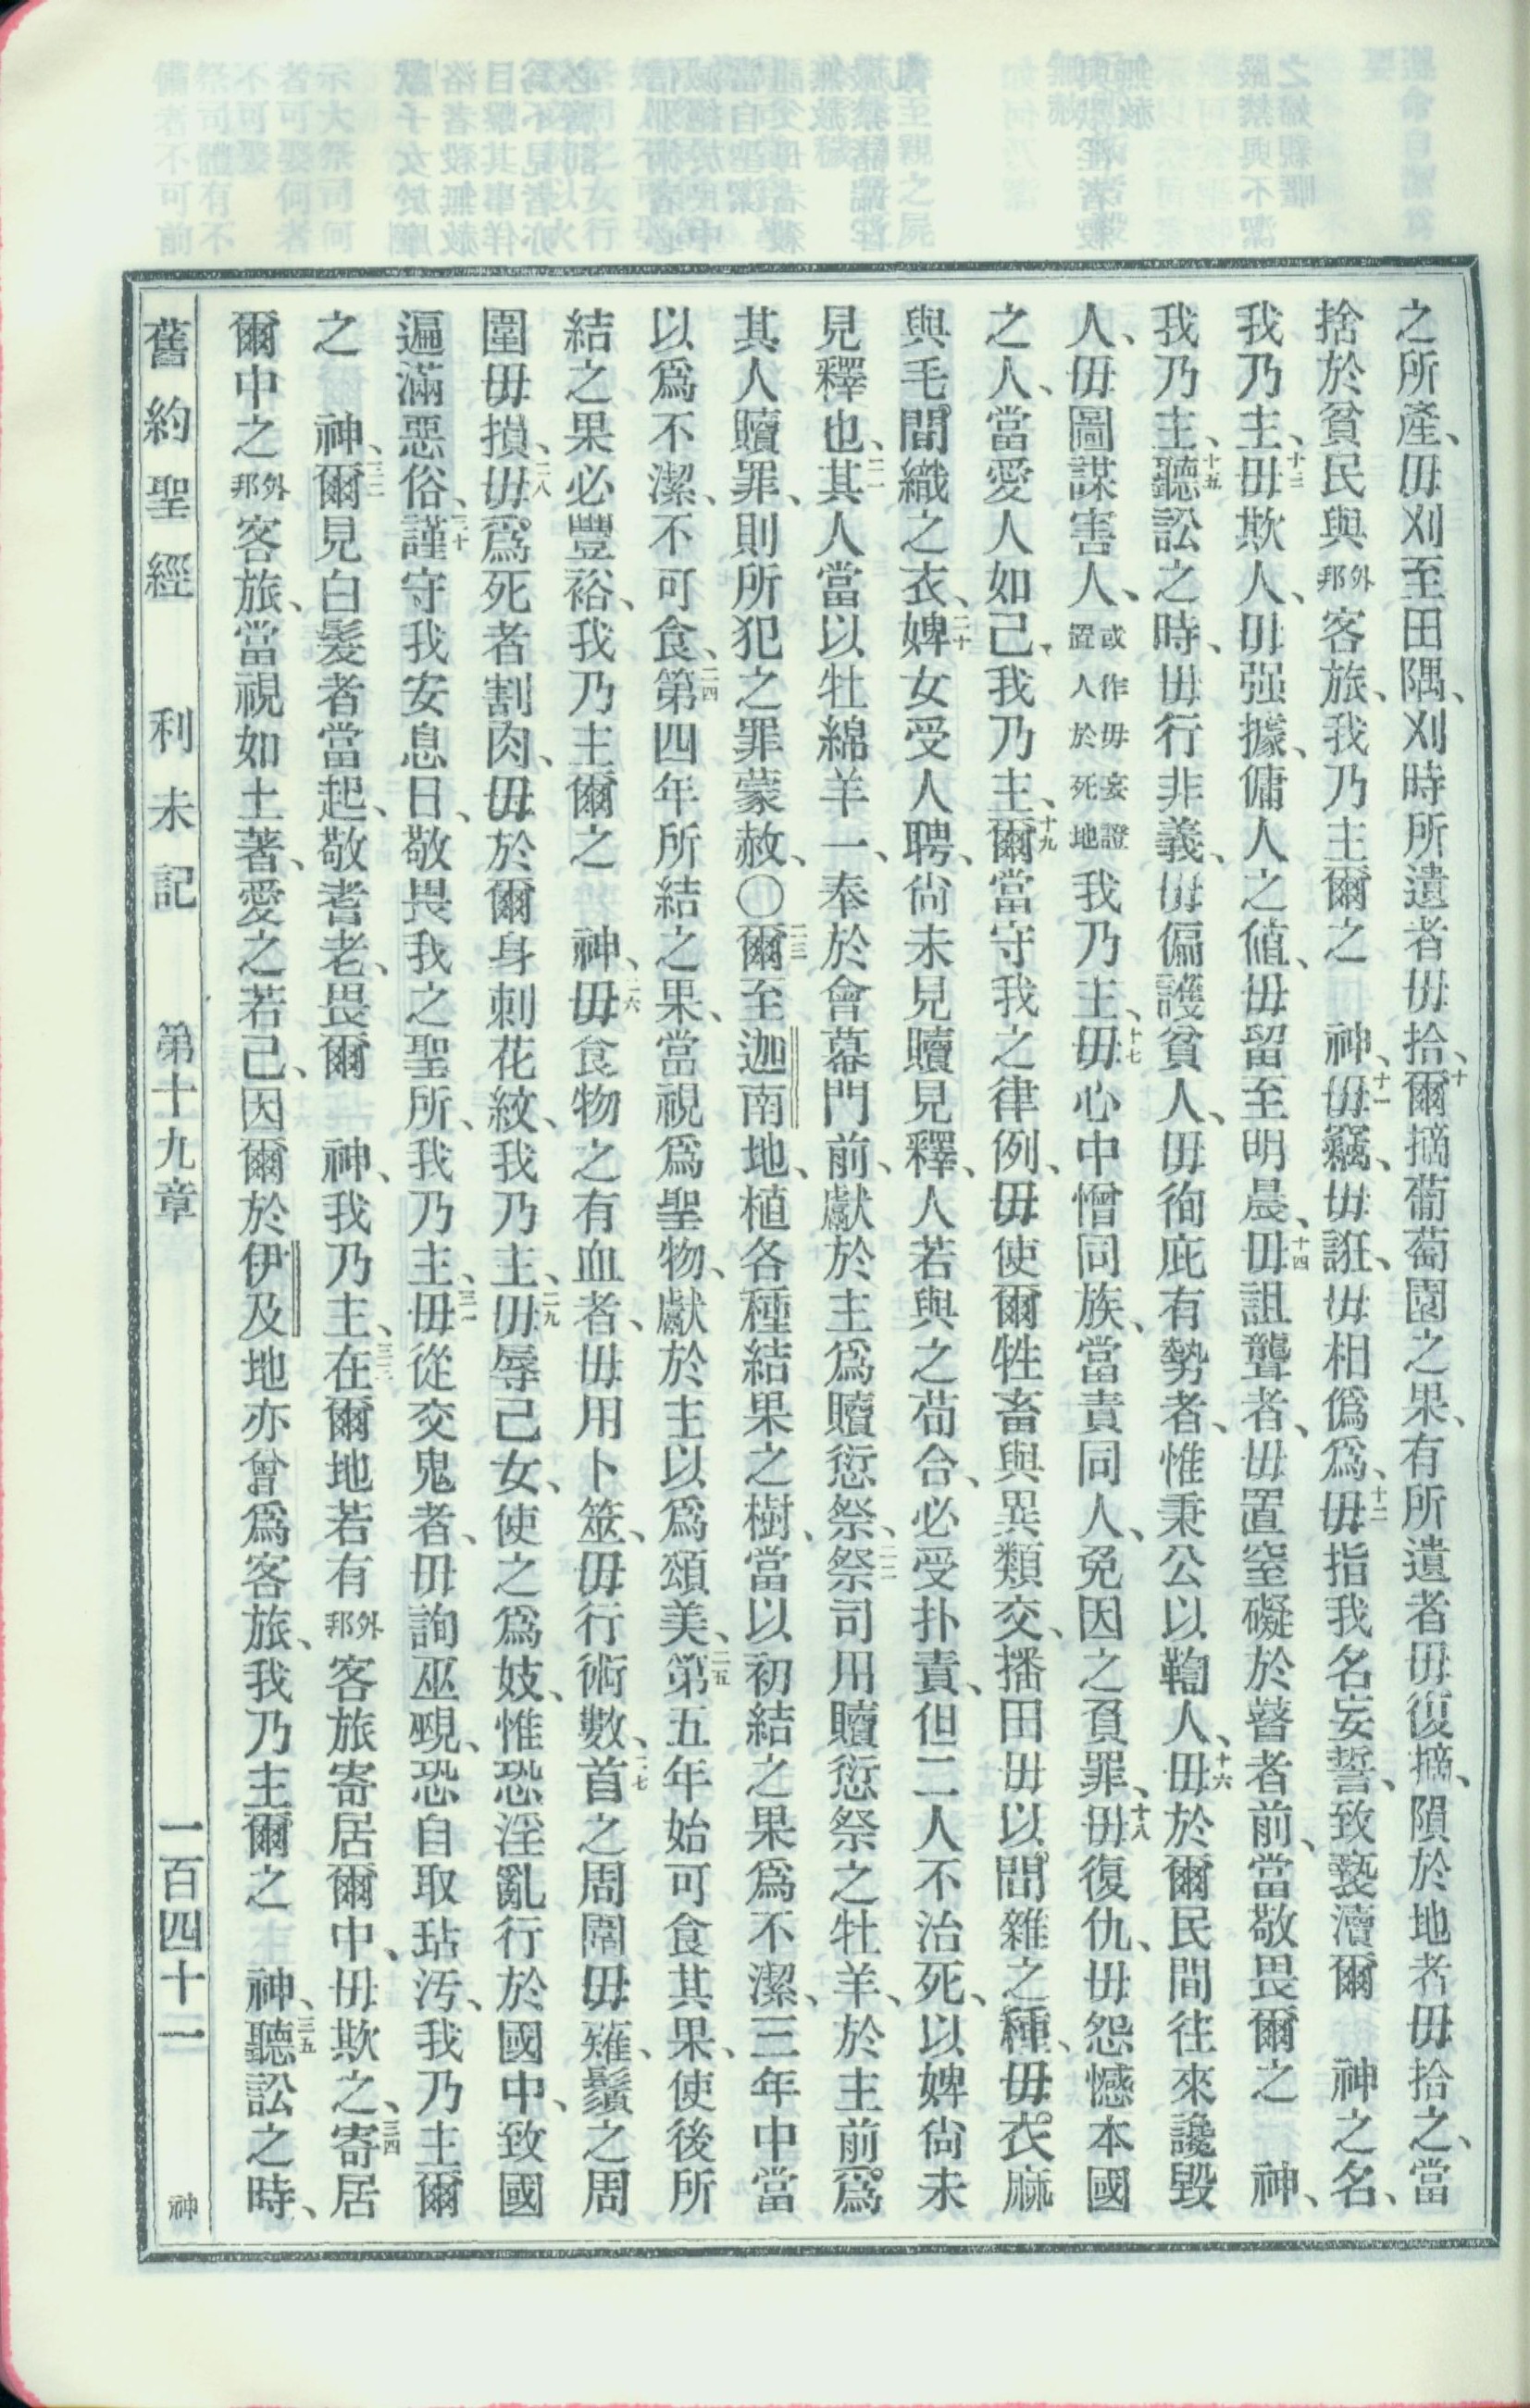 之所產、毋刈至田隅、刈時所遺者毋拾、十爾摘葡萄園之果、有所遺者毋復摘、隕於地者毋拾之、當
捨於貧民與外邦客旅、我乃主爾之　神、十一毋竊、毋誑、毋相僞爲、十二毋指我名妄誓、致褻瀆爾　神之名、
我乃主、十三毋欺人、毋强據、傭人之値、毋留至明晨、十四毋詛聾者、毋置窒礙於瞽者前、當敬畏爾之　神、
我乃主、十五聽訟之時、毋行非義、毋偏護貧人、毋徇庇有勢者、惟秉公以鞫人、十六毋於爾民間往來讒毀
人、毋圖謀害人、或作毋妄證置人於死地我乃主、十七毋心中憎同族、當責同人、免因之負罪、十八毋復仇、毋怨憾本國
之人、當愛人如己、我乃主、十九爾當守我之律例、毋使爾牲畜與異類交、播田毋以間雜之種、毋衣麻
與毛間織之衣、二十婢女受人聘、尙未見贖見釋、人若與之苟合、必受扑責、但二人不治死、以婢尙未
見釋也、二一其人當以牡綿羊一、奉於會幕門前、獻於主爲贖愆祭、二二祭司用贖愆祭之牡羊、於主前爲
其人贖罪、則所犯之罪蒙赦、〇二三爾至迦南地、植各種結果之樹、當以初結之果爲不潔、三年中當
以爲不潔、不可食、二四第四年所結之果、當視爲聖物、獻於主以爲頌美、二五第五年始可食其果、使後所
結之果必豐裕、我乃主爾之　神、二六毋食物之有血者、毋用卜筮、毋行術數、二七首之周圍毋薙、鬚之周
圍毋損、二八毋爲死者割肉、毋於爾身刺花紋、我乃主、二九毋辱己女、使之爲妓、惟恐淫亂行於國中、致國
遍滿惡俗、三十謹守我安息日、敬畏我之聖所、我乃主、三一毋從交鬼者、毋詢巫覡、恐自取玷汚、我乃主爾
之　神、三二爾見白髮者當起、敬耆老、畏爾　神、我乃主、三三在爾地若有外邦客旅寄居爾中、毋欺之、三四寄居
爾中之外邦客旅、當視如土著、愛之若己、因爾於伊及地亦曾爲客旅、我乃主爾之　神、三五聽訟之時、
舊約聖經　利未記　第十九章　一百四十一　神